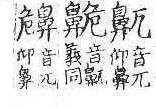 鼿音兀仰鼻
音鼿義同
音兀仰鼻